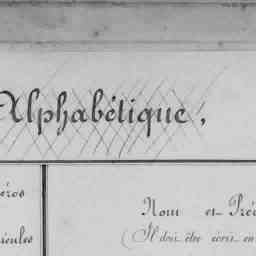 Alphabétique,
éros
Nom et Pré
icules
(Il doit être écrit en